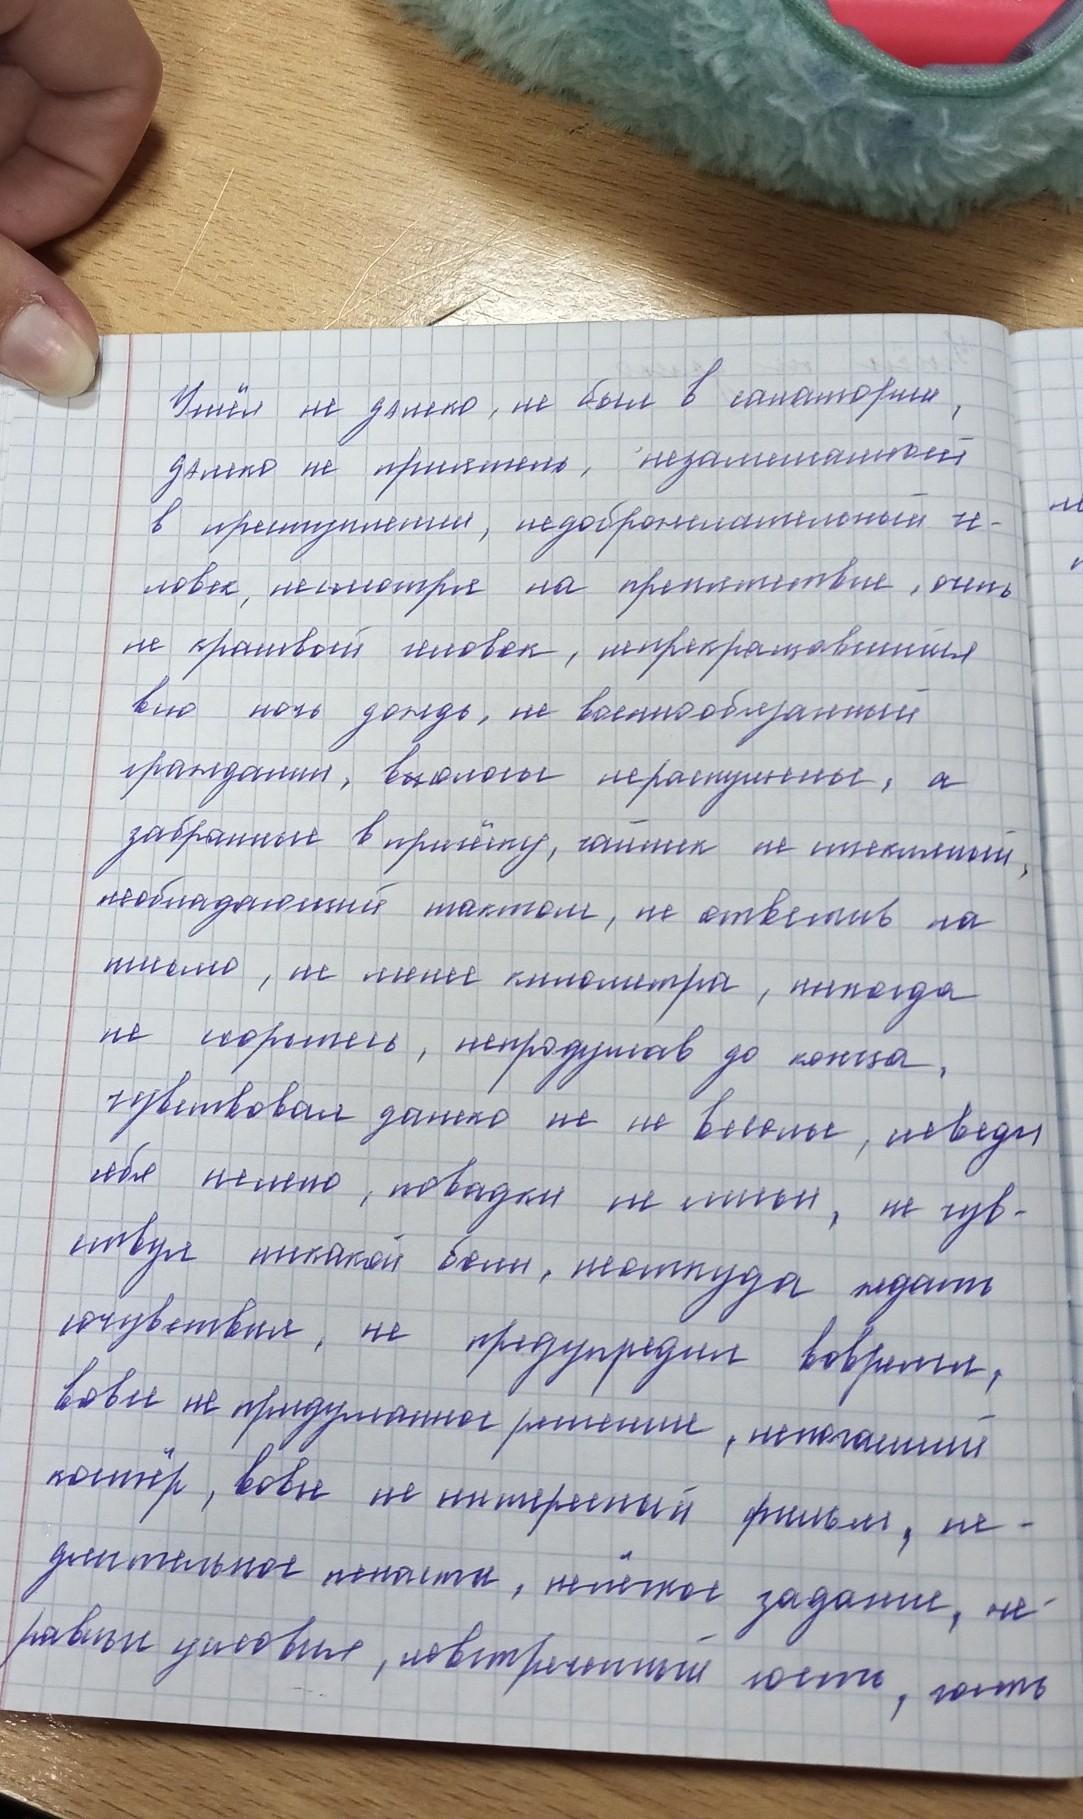 Ушёл не далеко, не был в санатории,
далеко не приятель, незамешанной
в преступлении, недоброжелательный че-
ловек, несмотря на препятствие, очень
не красивый человек, непрекращавшийся
всю ночь дождь, не военнообязанный
гражданин, волосы нераспущены, а
забранные в причёску, чайник не стеклянный,
необладающий тактом, не ответив на
письмо, не менее километра, никогда
не ссорьтесь, непродумав до конца,
чувствовал далеко не не веселье, неведи
себя нелепо, повадки не лисьи, не чув-
ствуя никакой боли, неоткуда ждать
сочувствия, не предупредил вовремя,
вовсе не придуманное решение, непогасший
костёр, вовсе не интересный фильм, не-
длительное ненастье, нелёгкое задание, не-
равные условия, невстреченный гость, гость